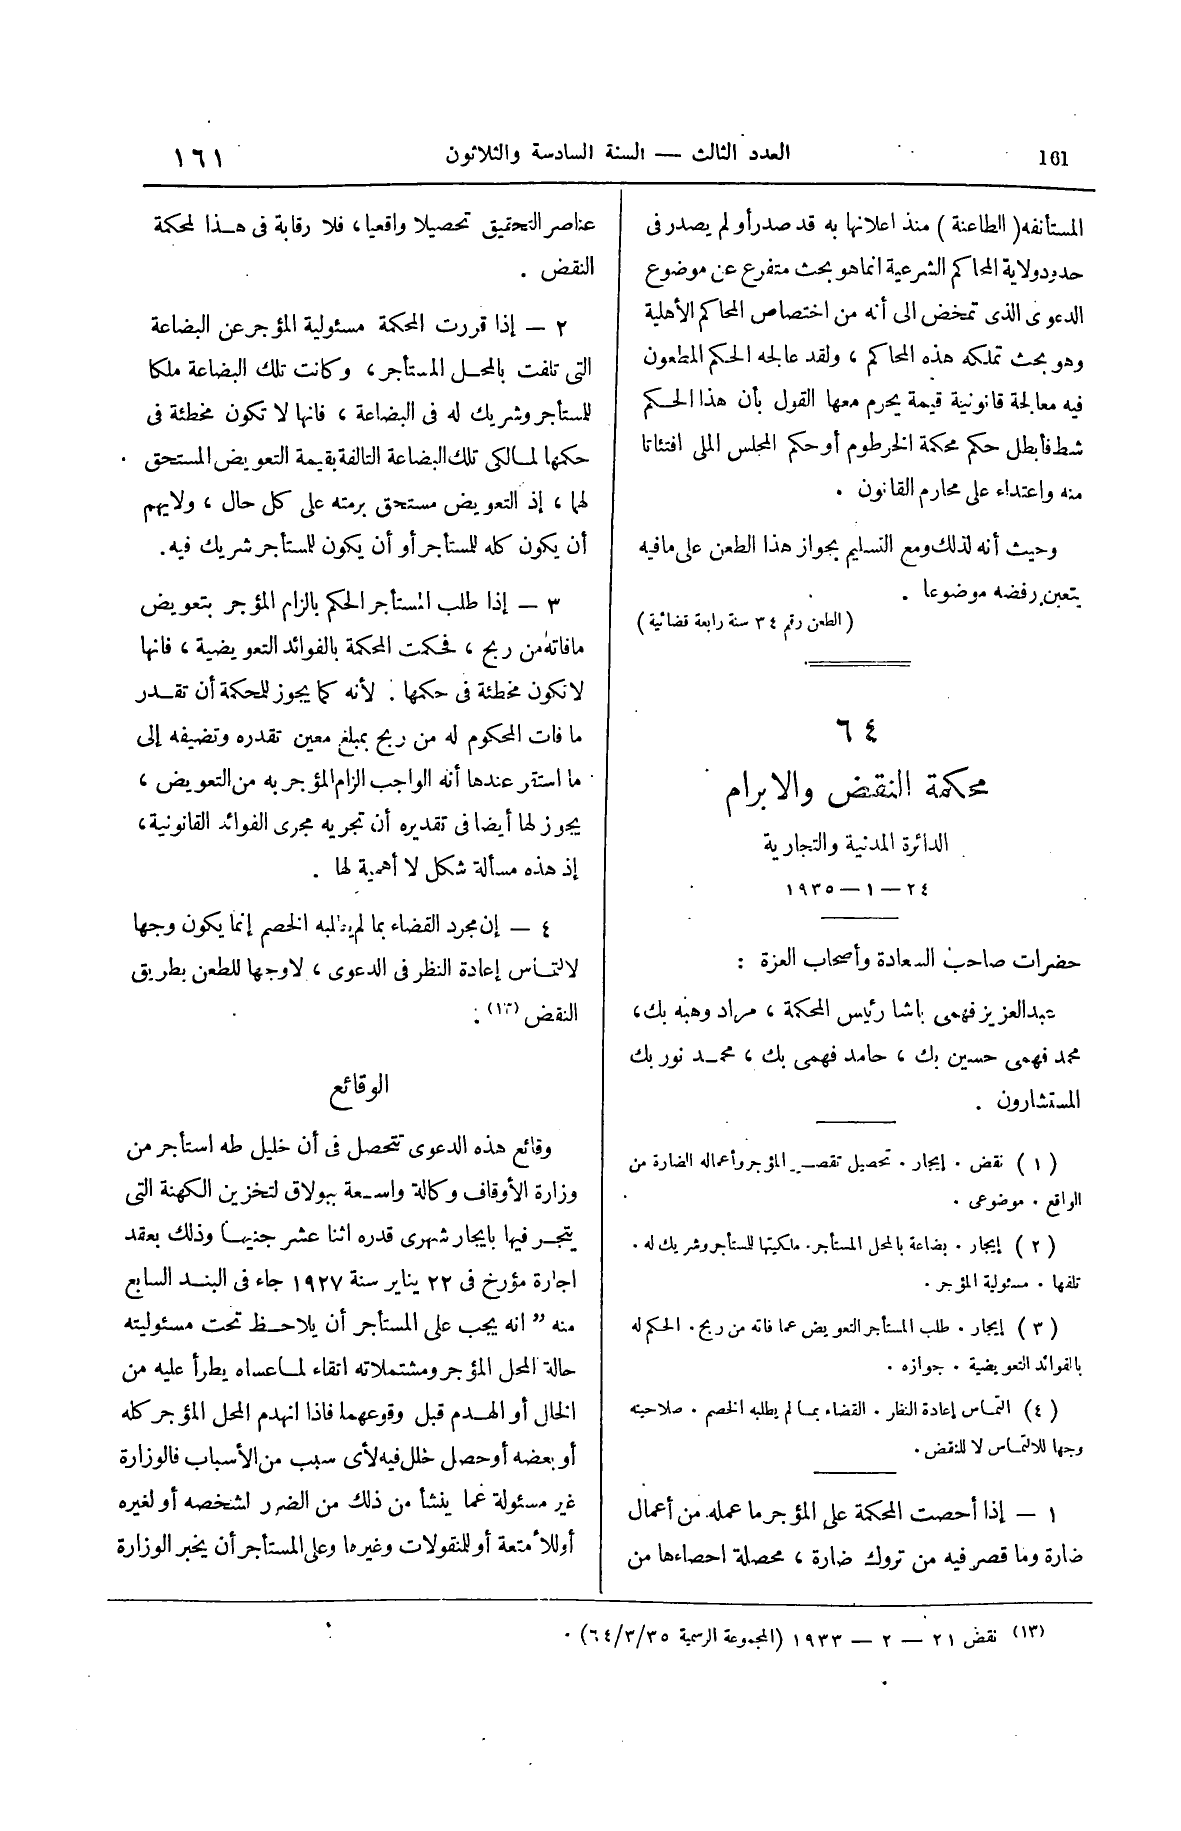 161
العدد الثالث — السنة السادسة والثلاثون
١٦١
المستأنفه ( الطاعنة ) منذ اعلانها به قد صدر أو لم يصدر فى
حدود ولاية المحاكم الشرعية انما هو بحث متفرع عن موضوع
الدعوى الذى تمخض الى أنه من اختصاص المحاكم الأهلية
وهو بحث تملكه هذه المحاكم ، ولقد عالجه الحكم المطعون
فيه معالجة قانونية قيمة يحرم معها القول بأن هذا الحكم
شط فأبطل حكم محكمة الخرطوم أو حكم المجلس الملى افتئاتا
منه واعتداء على محارم القانون .
وحيث أنه لذلك ومع التسليم بجواز هذا الطعن على مافيه
يتعين رفضه موضوعا .
( الطعن رقم ٣٤ سنة رابعة قضائية )
٦٤
محكمة النقض والابرام
الدائرة المدنية والتجارية
٢٤ — ١ — ١٩٣٥
حضرات صاحب السعادة وأصحاب العزة :
عبدالعزيز فهمى باشا رئيس المحكمة ، مراد وهبه بك،
محمد فهمى حسين بك ، حامد فهمى بك ، محمد نور بك
المستشارون .
( ١ ) نقض . إيجار . تحصيل تقصير المؤجر وأعماله الضارة من
الواقع . موضوعى .
( ٢ ) إيجار . بضاعة بالمحل المستأجر. ملكيتها للمستأجر وشريك له .
تلفها . مسئولية المؤجر .
( ٣ ) إيجار . طلب المستأجر التعويض عما فاته من ربح. الحكم له
بالفوائد التعويضية . جوازه .
( ٤ ) التماس إعادة النظر . القضاء بما لم يطلبه الخصم . صلاحيته
وجها للالتماس لا للنقض.
١ — إذا أحصت المحكمة على المؤجر ما عمله من أعمال
ضارة وما قصر فيه من تروك ضارة ، محصلة احصاءها من
عناصر التحقيق تحصيلا واقعيا، فلا رقابة فى هذا لمحكمة
النقض .
٢ — إذا قررت المحكمة مسئولية المؤجر عن البضاعة
التى تلفت بالمحل المستأجر، وكانت تلك البضاعة ملكا
للمستأجر وشريك له فى البضاعة ، فانها لا تكون مخطئة فى
حكمها لمالكى تلك البضاعة التالفة بقيمة التعويض المستحق
لهما ، إذ التعويض مستحق برمته على كل حال ، ولايهم
أن يكون كله للمستأجر أو أن يكون للمستأجر شريك فيه.
٣ — إذا طلب المستأجر الحكم بالزام المؤجر بتعويض
مافاته من ربح ، فحكمت المحكمة بالفوائد التعويضية ، فانها
لا تكون مخطئة فى حكمها . لأنه كما يجوز للمحكمة أن تقدر
ما فات المحكوم له من ربح بمبلغ معين تقدره وتضيفه إلى
ما استقر عندها أنه الواجب الزام المؤجر به من التعويض ،
يجوز لها أيضا فى تقديره أن تجريه مجرى الفوائد القانونية،
إذ هذه مسألة شكل لا أهمية لها .
٤ — إن مجرد القضاء بما لم يطلبه الخصم إنما يكون وجها
لالتماس إعادة النظر فى الدعوى ، لاوجها للطعن بطريق
النقض (١٣) .
الوقائع
وقائع هذه الدعوى تتحصل فى أن خليل طه استأجر من
وزارة الأوقاف وكالة واسعة ببولاق لتخزين الكهنة التى
يتجر فيها بايجار شهرى قدره اثنا عشر جنيها وذلك بعقد
اجارة مؤرخ فى ٢٢ يناير سنة ١٩٢٧ جاء فى البند السابع
منه " انه يجب على المستأجر أن يلاحظ تحت مسئوليته
حالة المحل المؤجر ومشتملاته اتقاء لما عساه يطرأ عليه من
الخال أو الهدم قبل وقوعهما فاذا انهدم المحل المؤجر كله
أو بعضه أو حصل خلل فيه لأى سبب من الأسباب فالوزارة
غير مسئولة عما ينشأ من ذلك من الضرر لشخصه أو لغيره
أو للأمتعة أو للمنقولات وغيرها وعلى المستأجر أن يخبر الوزارة
(١٣) نقض ٢١ — ٢ — ١٩٣٣ (المجموعة الرسمية ٦٤/٣/٣٥) .